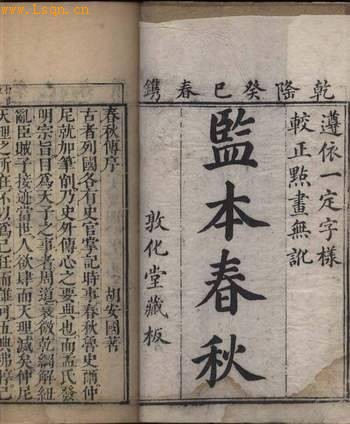 www.lsqn.cn
乾隆癸巳春鐫
遵依一定字樣
較正點畫無訛
監本春秋
敦化堂藏板
春秋傳序
胡安國著
古者列國各有史官掌記時事春秋魯史爾仲
尼就加筆削乃史外傳心之要典也而孟氏發
明宗旨目爲天子之事者周道衰微乾綱解紐
亂臣賊子接迹當世人欲肆而天理滅矣仲尼
天理之所在不以爲己任而誰可五典弗惇己